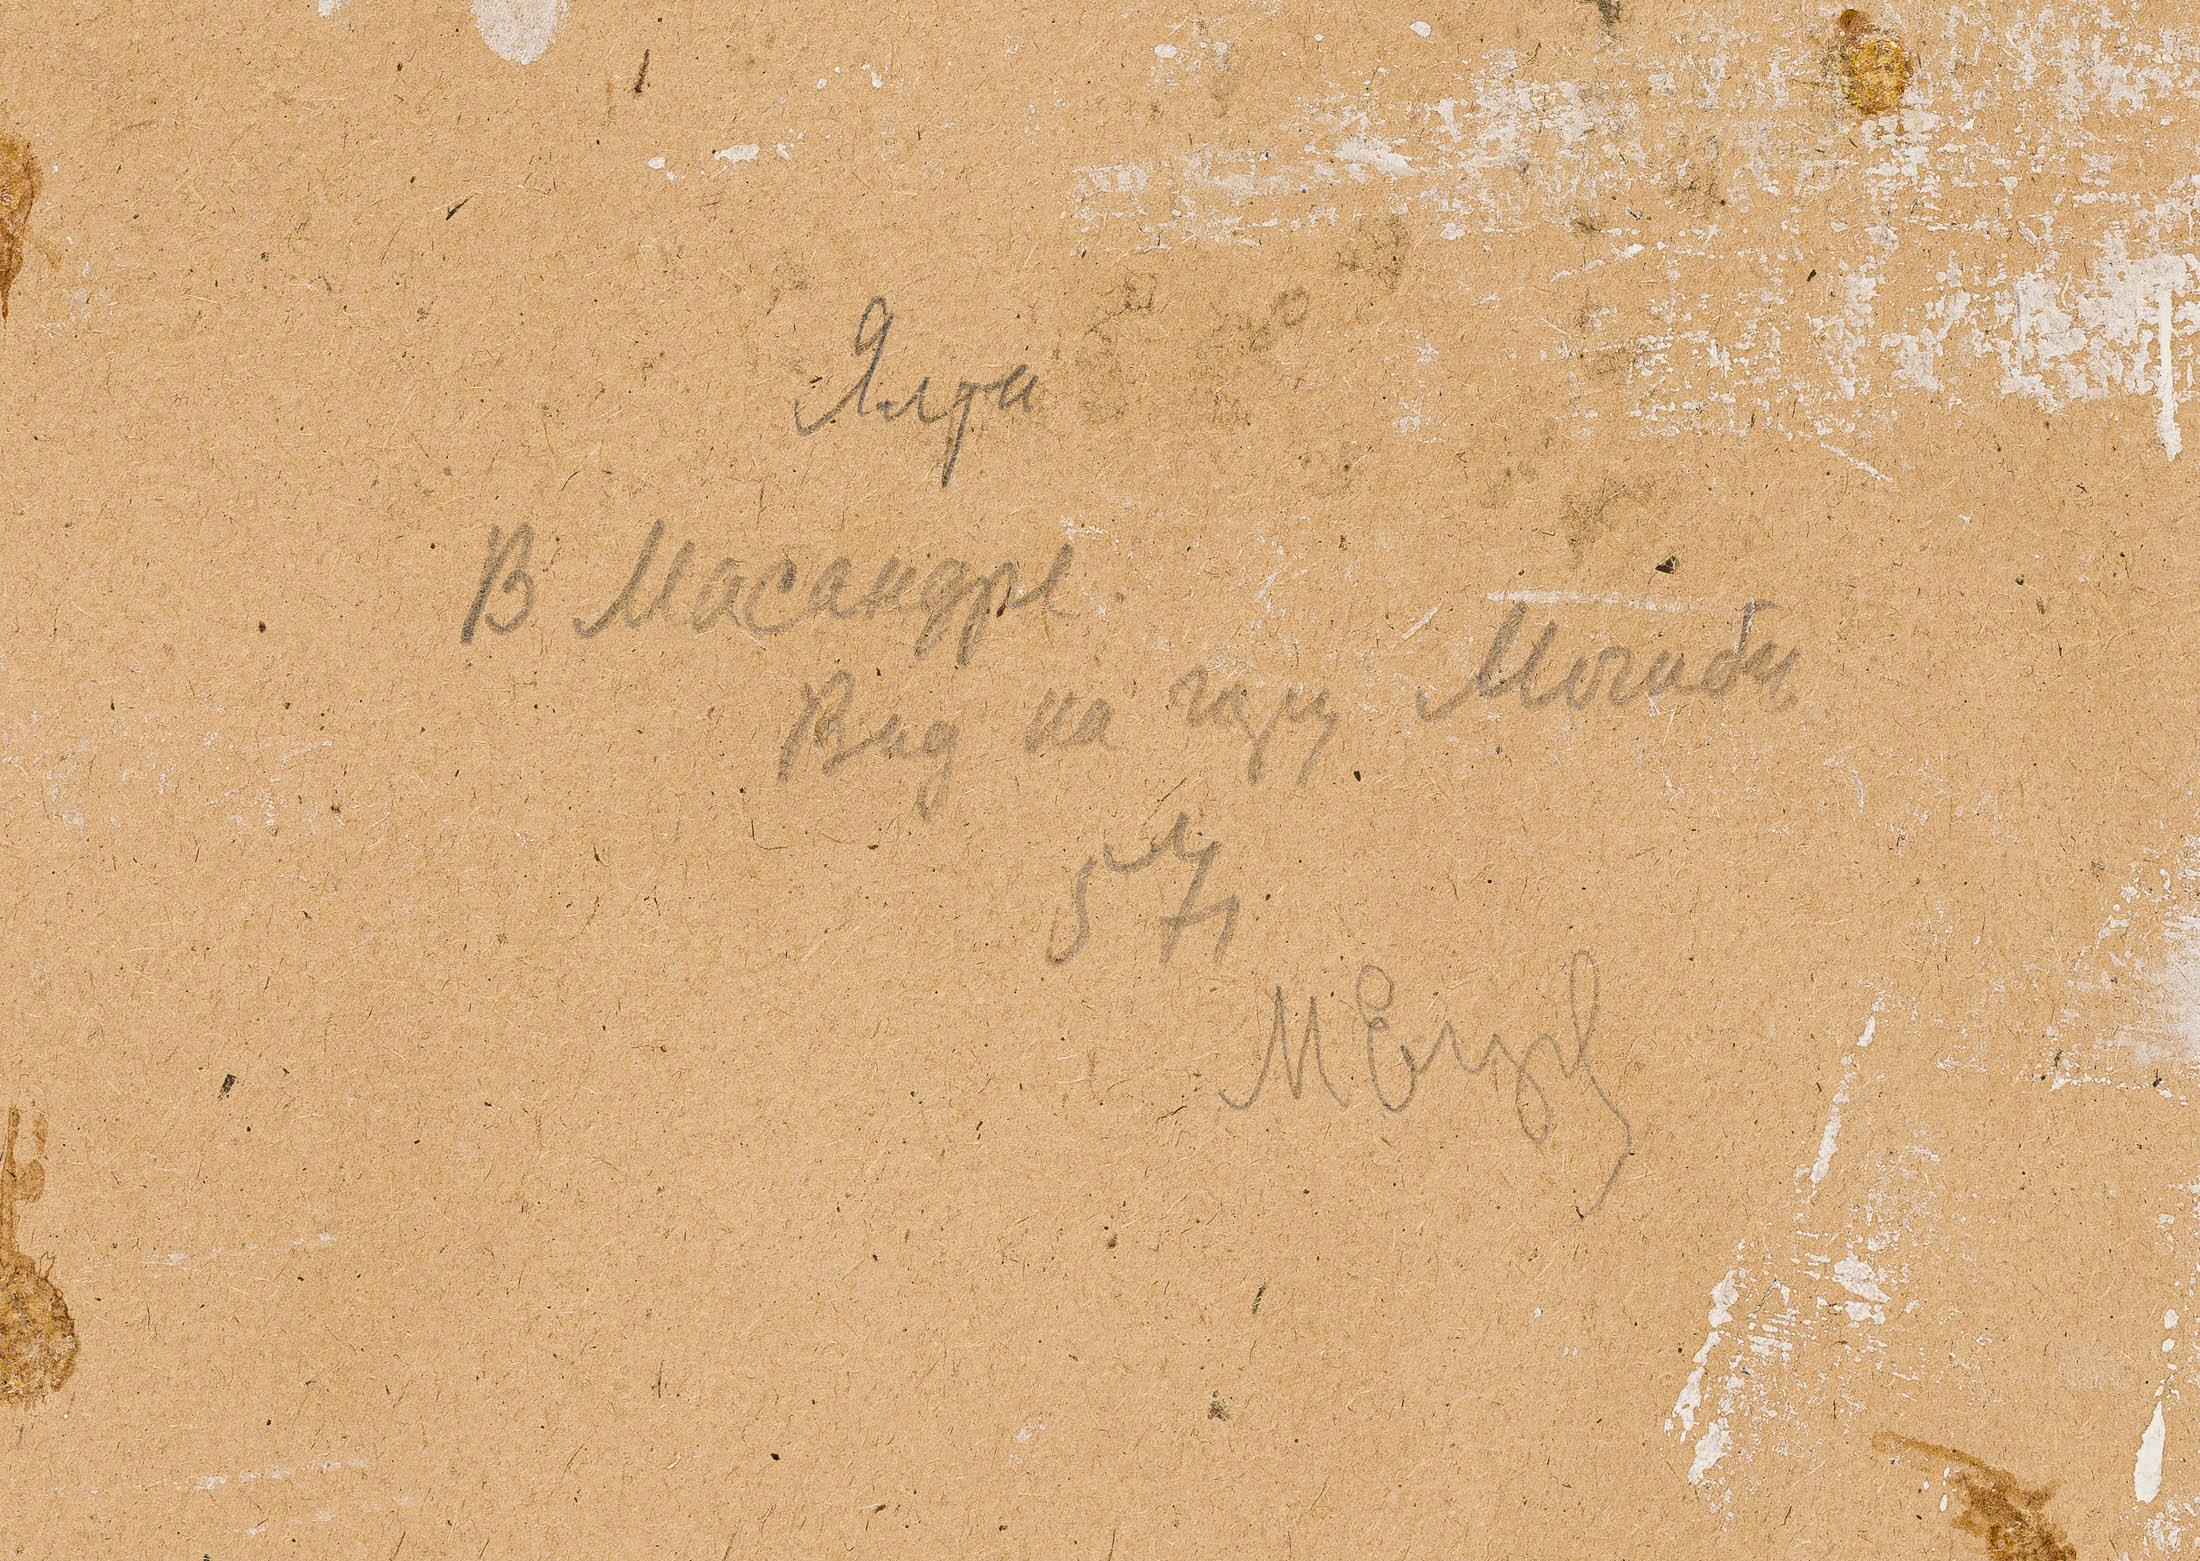 Ялта
В Масандре.
Вид на гору Могаби
57